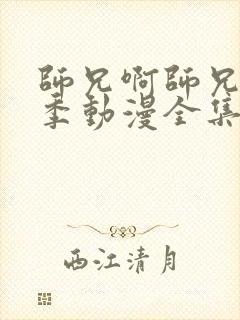 師兄啊師兄
季動漫全集
西江清月